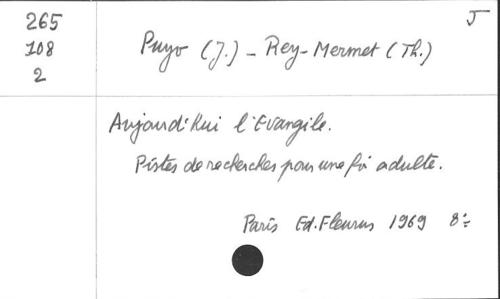 265
108
2
J
Puyo (J.) - Rey-Mermet (Th.)
Aujourd'hui l'Evangile.
Pistes de recherches pour une foi adulte.
Paris Ed. Fleurus 1969 8°